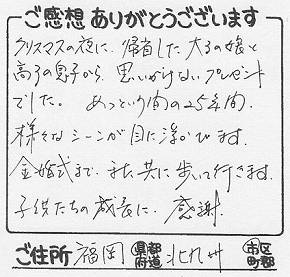 ご感想ありがとうございます
クリスマスの夜に、帰省した大3の娘と
高3の息子から、思いがけないプレゼント
でした。 あっという間の25年間。
様々なシーンが目に浮かびます。
金婚式まで、また、共に歩いて行きます。
子供たちの成長に、感謝。
ご住所 福岡 都道府県 北九州 市区町郡